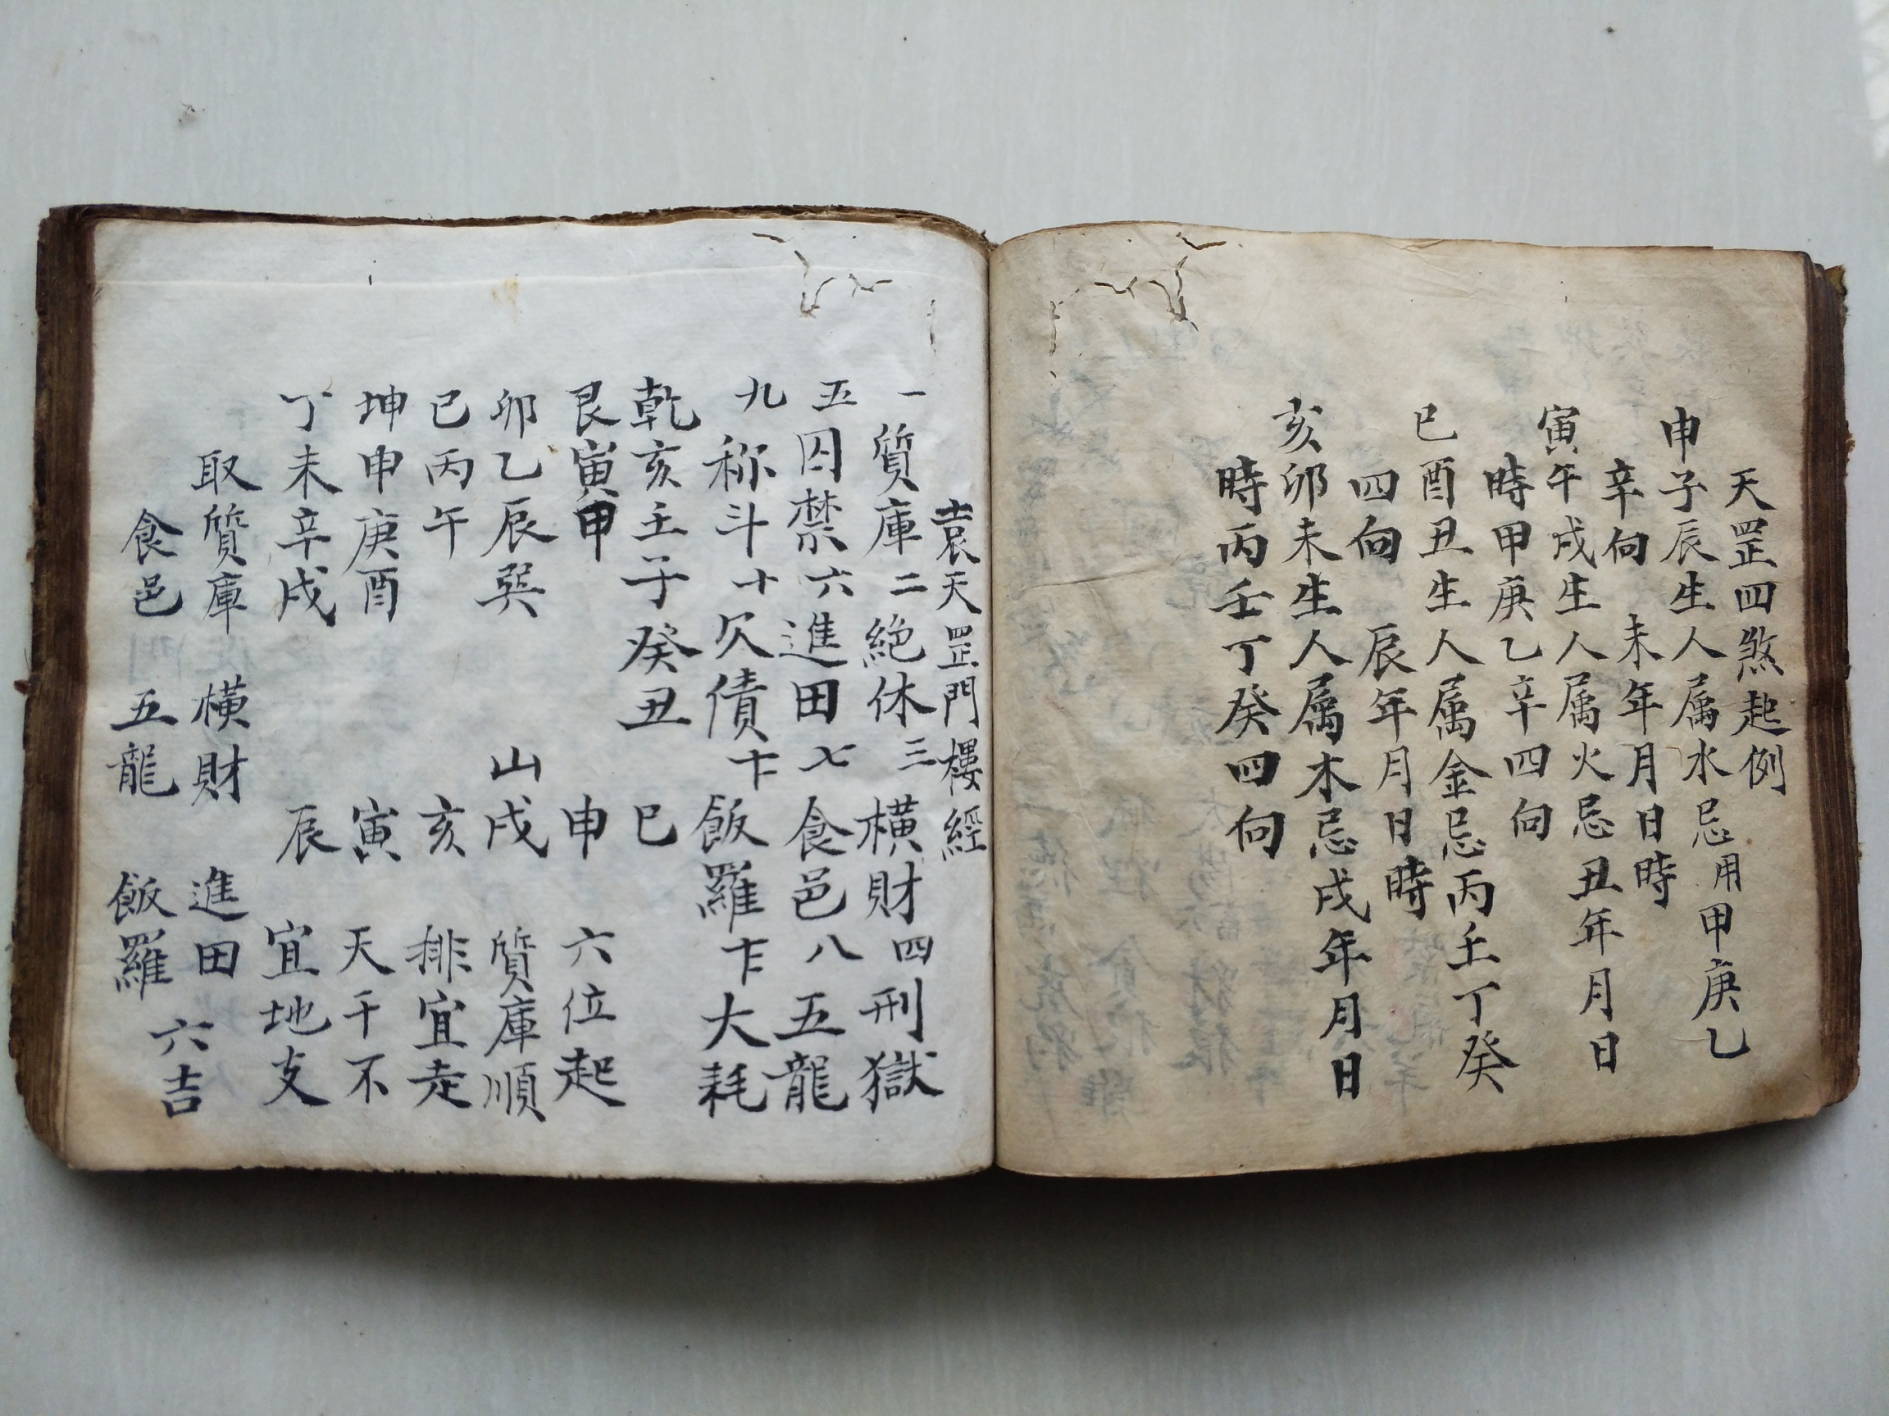 天罡四煞起例
申子辰生人属水忌用甲庚乙
辛向　未年月日時
寅午戌生人属火忌丑年月日
時甲庚乙辛四向
巳酉丑生人属金忌丙壬丁癸
四向　辰年月日時
亥卯未生人属木忌戌年月日
時丙壬丁癸四向
袁天罡門樓經
一質庫二絕休三橫財四刑獄
五囚禁六進田七食邑八五龍
九称斗十欠債十飯羅十大耗
乾亥壬子癸丑　巳
艮寅甲　申　六位起
卯乙辰巽　山戌　質庫順
巳丙午　亥　排宜走
坤申庚酉　寅　天干不
丁未辛戌　辰　宜地支
取質庫　橫財　進田
食邑　五龍　飯羅　六吉